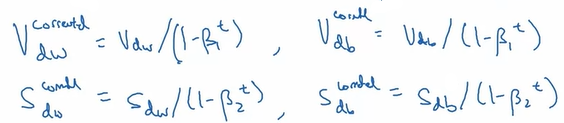 V_{dw}^{corrected} = V_{dw}/(1-β_1^t), V_{db}^{corrected} = V_{db}/(1-β_1^t)
S_{dw}^{corrected} = S_{dw}/(1-β_2^t), S_{db}^{corrected} = S_{db}/(1-β_2^t)